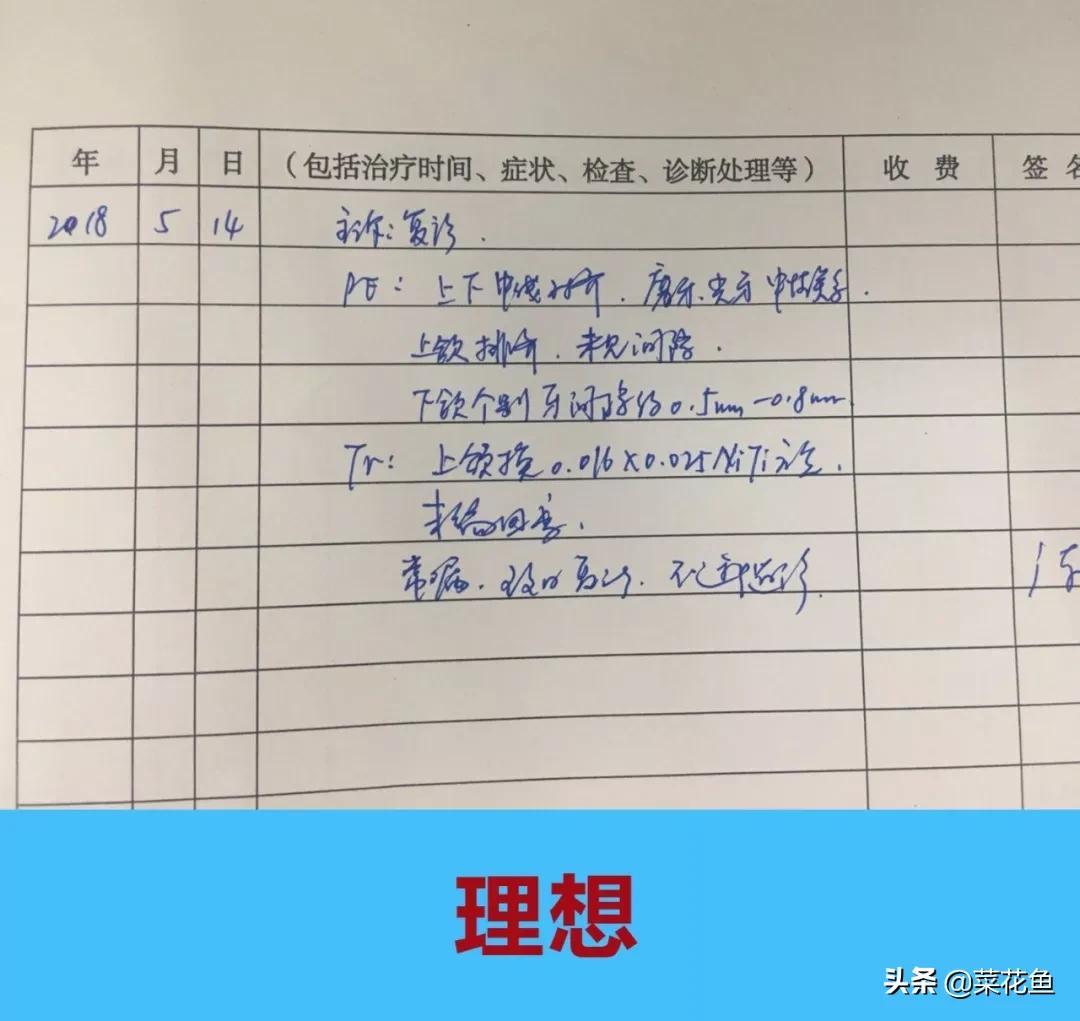 年 月 日 (包括治疗时间、症状、检查、诊断处理等) 收 费 签 名
2018 5 14 主诉:复诊.
PE: 上下中线对齐.磨牙、尖牙中性关系.
上颌排齐.未见间隙.
下颌个别牙间隙约0.5mm-0.8mm.
Tr: 上颌换0.016×0.025NiTi方丝.
末端回弯.
常嘱.
复诊.不适随诊.
理想
头条 @菜花鱼